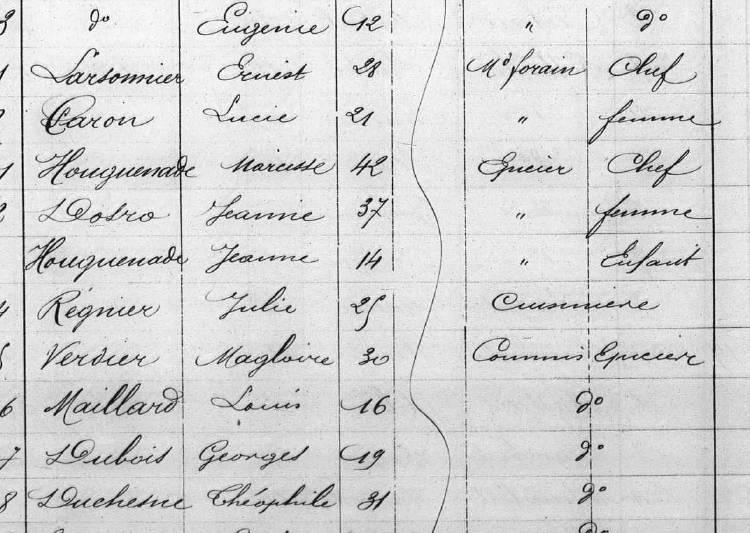 3 do Eugenie 12 " do
1 Larsonnier Ernest 28 Md forain Chef
2 Caron Lucie 21 " femme
1 Houguenade Narcisse 42 Epicier Chef
2 Jeanne 37 " femme
Houguenade Jeanne 14 " Enfant
4 Régnier Julie 25 Cuisinière
5 Verdier Magloire 30 Commis Epicier
6 Maillard Louis 16 do
7 Dubois Georges 19 do
8 Duchesne Théophile 31 do
do